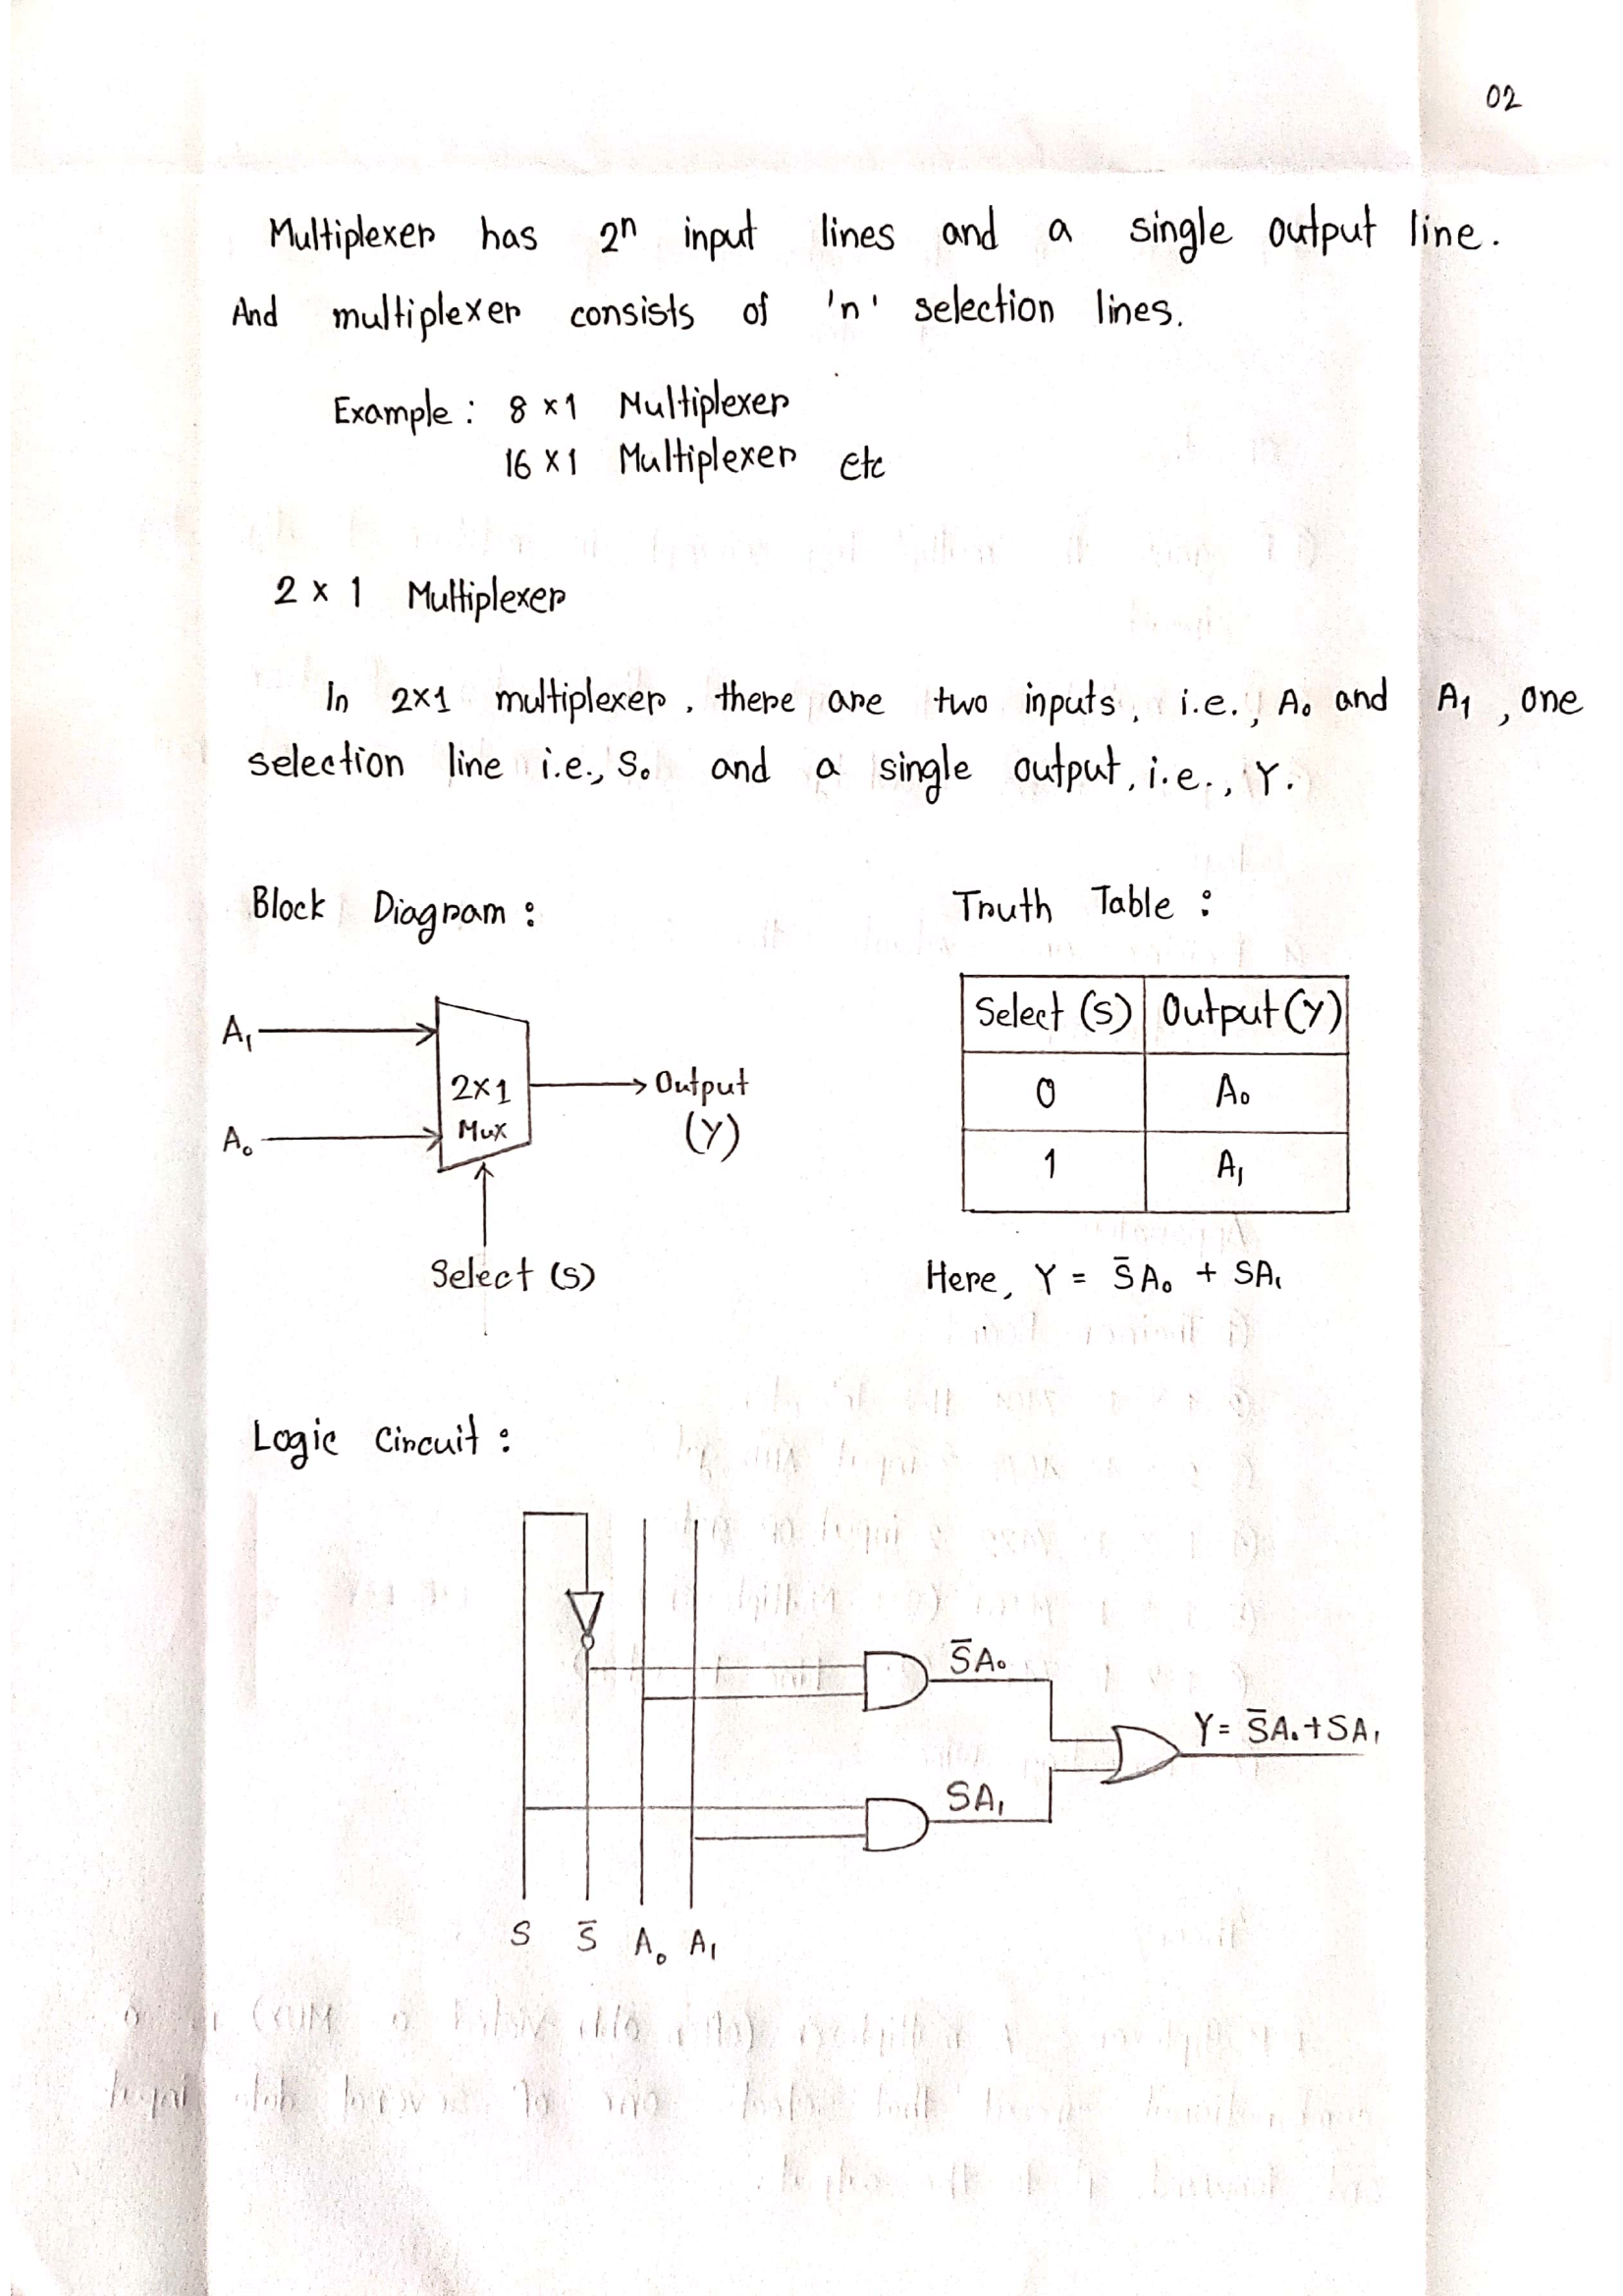 02
Multiplexer has 2ⁿ input lines and a single output line.
And multiplexer consists of 'n' selection lines.
Example : 8 x 1 Multiplexer
16 x 1 Multiplexer etc
2 x 1 Multiplexer
In 2x1 multiplexer, there are two inputs, i.e., A₀ and A₁, one
selection line i.e., S₀ and a single output, i.e., Y.
Block Diagram :
A₁
A₀
2x1
Mux
Output
(Y)
Select (S)
Truth Table :
Select (S) Output (Y)
0 A₀
1 A₁
Here, Y = S̄A₀ + SA₁
Logic Circuit :
S̄A₀
Y = S̄A₀ + SA₁
SA₁
S S̄ A₀ A₁